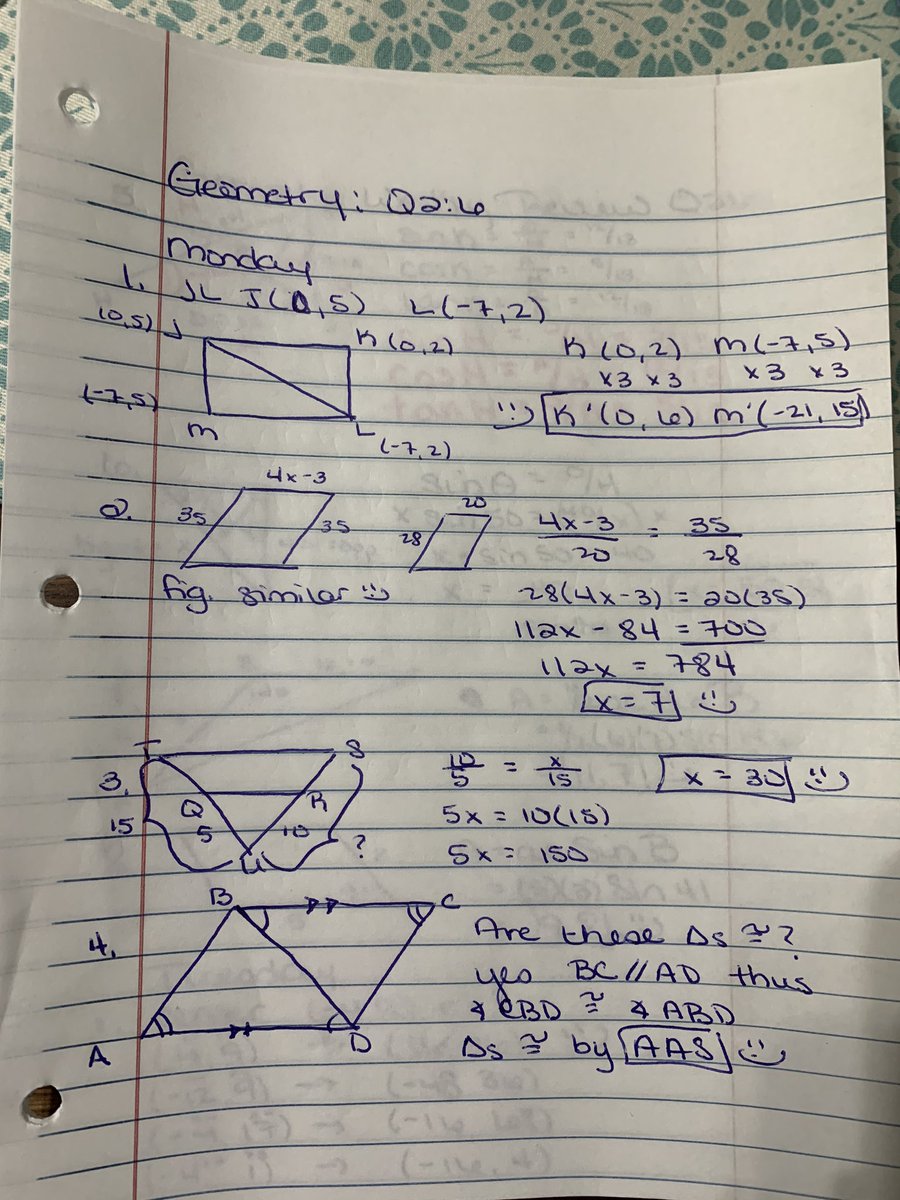 Geometry: Q2:6
Monday
1. JL J(0,5) L(-7,2)
(0,5) J
K(0,2)
(-7,5)
M
L
(-7,2)
K(0,2) M(-7,5)
x3 x3 x3 x3
K'(0,6) M'(-21,15)
2.
4x-3
35
35
20
28
fig. similar
4x-3/20 = 35/28
28(4x-3) = 20(35)
112x - 84 = 700
112x = 784
x=7
3.
T S
Q R
15 5 10 ?
U
10/5 = x/15
5x = 10(15)
5x = 150
x = 30
4.
B C
A D
Are these Δs ≅?
yes BC//AD thus
∡CBD ≅ ∡ABD
Δs ≅ by AAS